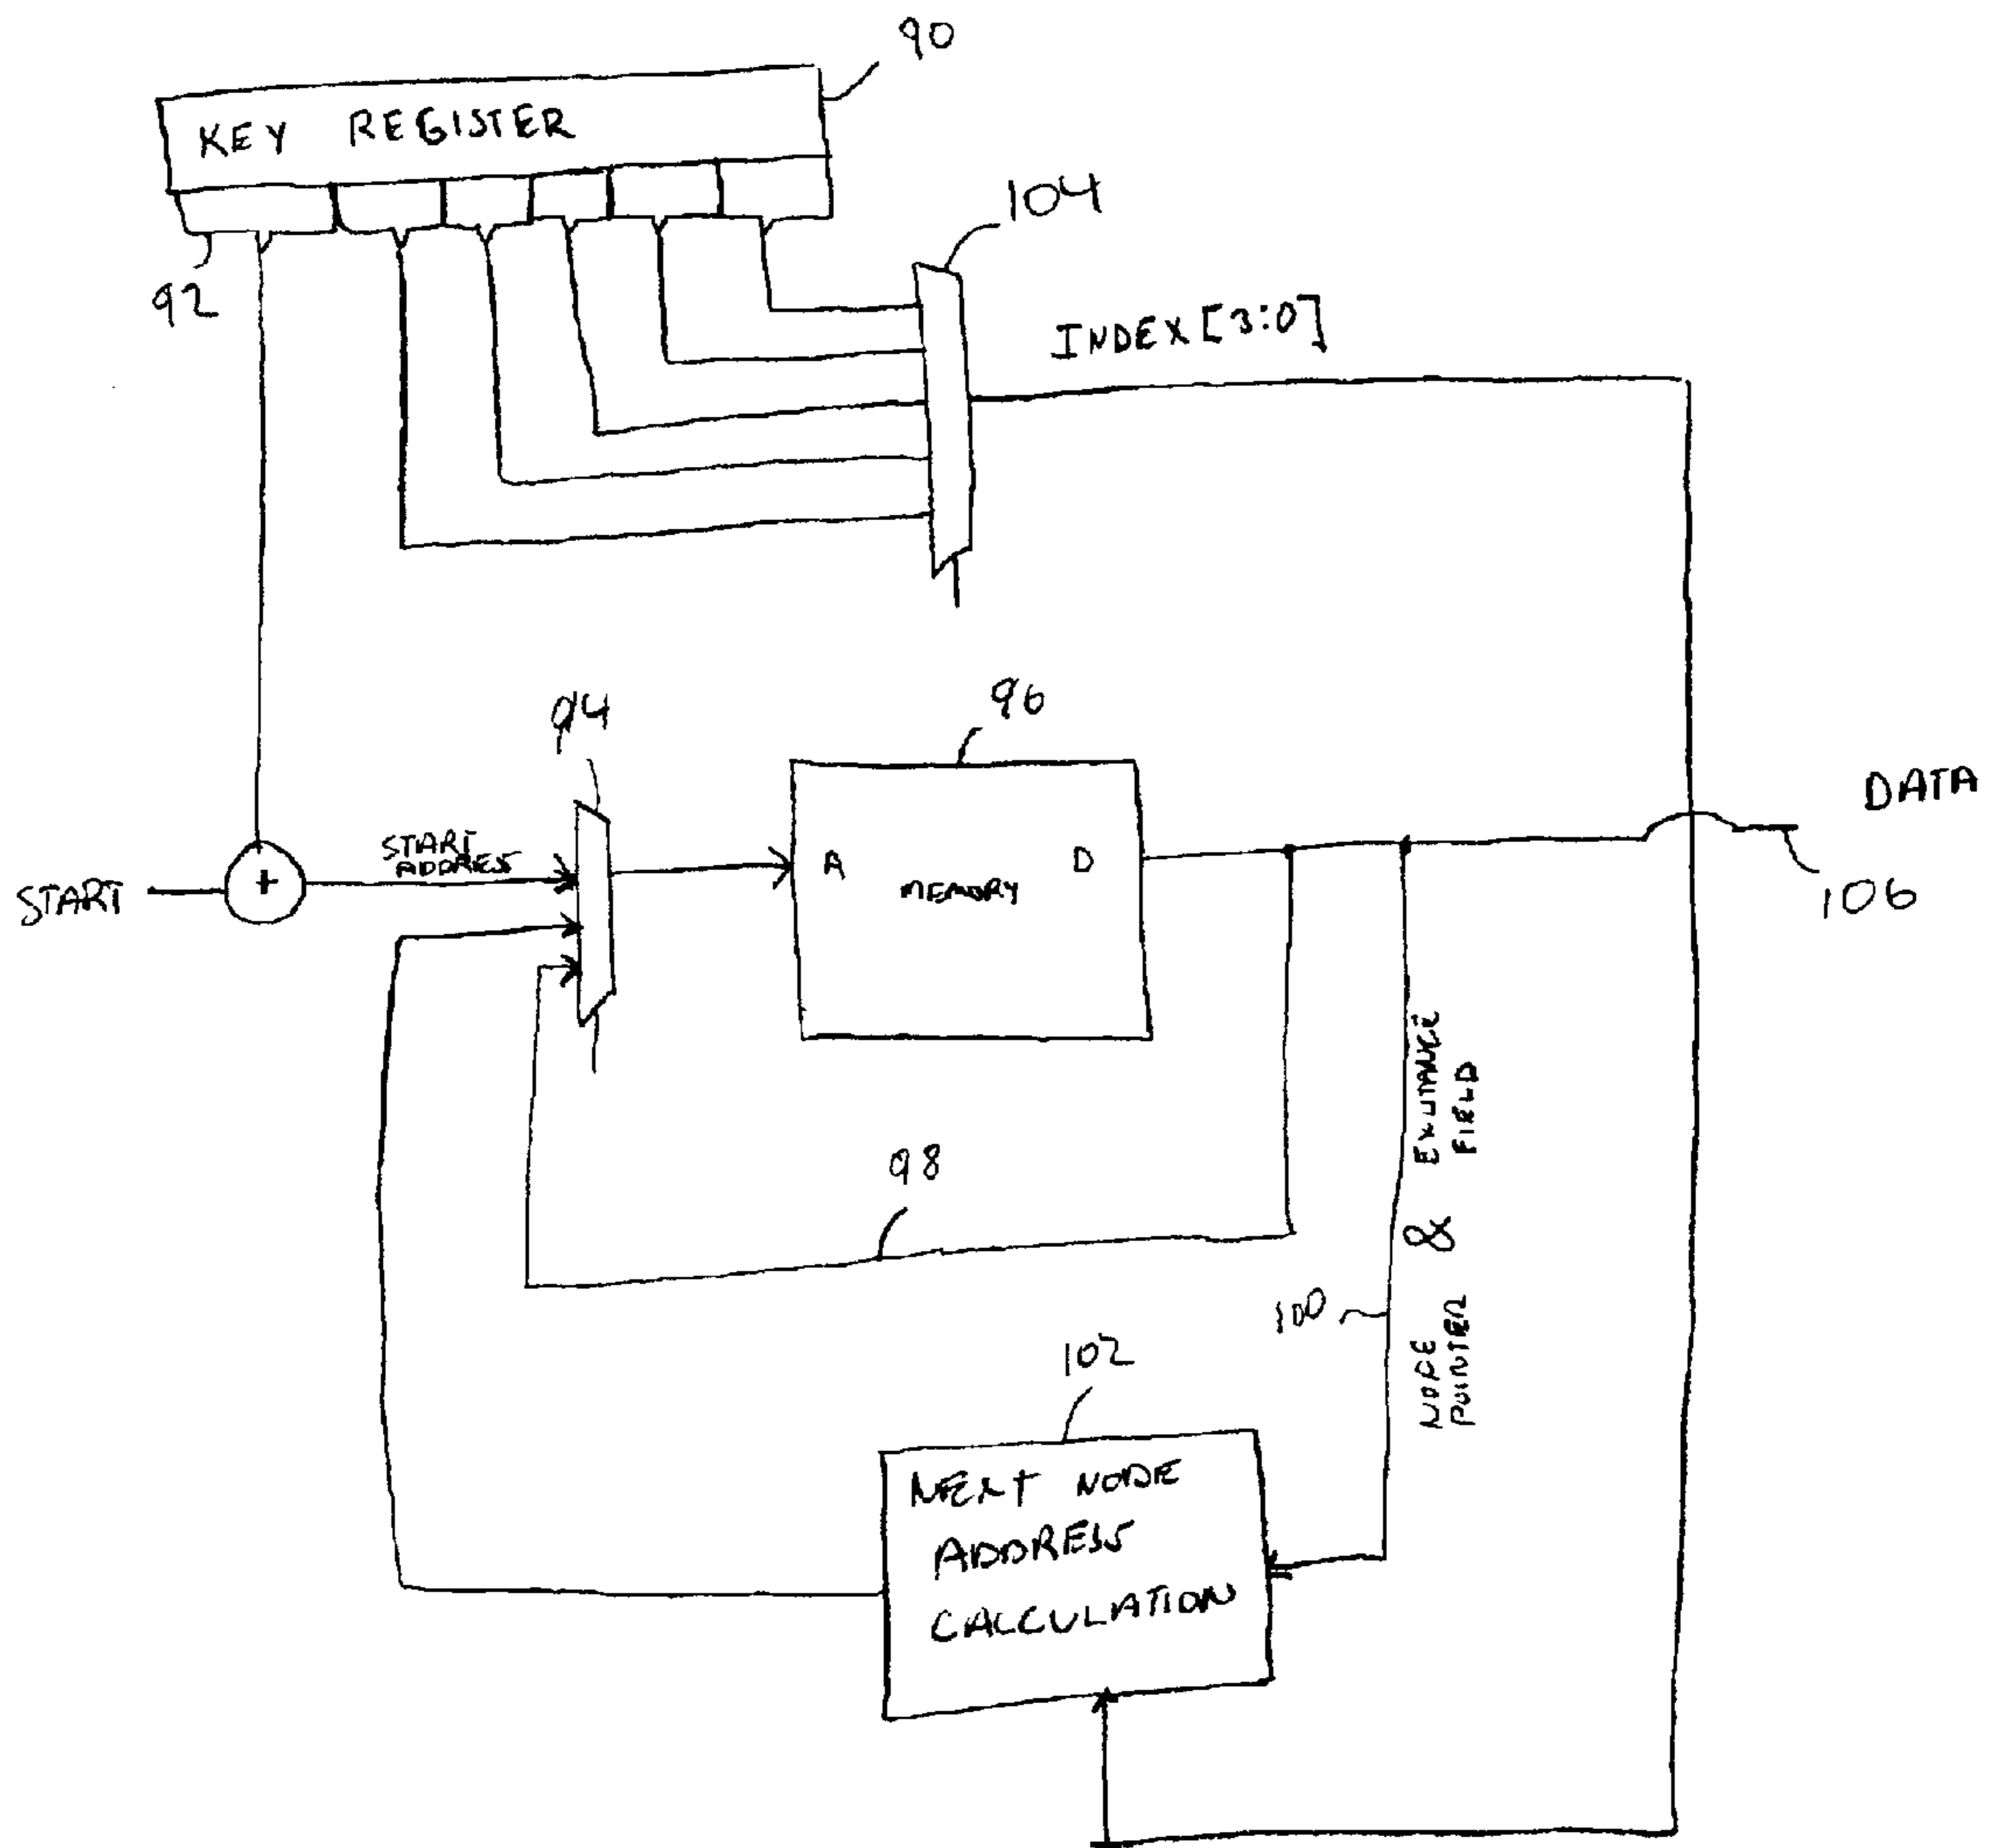 90
KEY REGISTER
104
92
INDEX [3:0]
94
96
DATA
START
ADDRESS
A
D
MEMORY
START
+
106
98
FIELD
&
100
NODE
POINTER
102
NEXT NODE
ADDRESS
CALCULATION